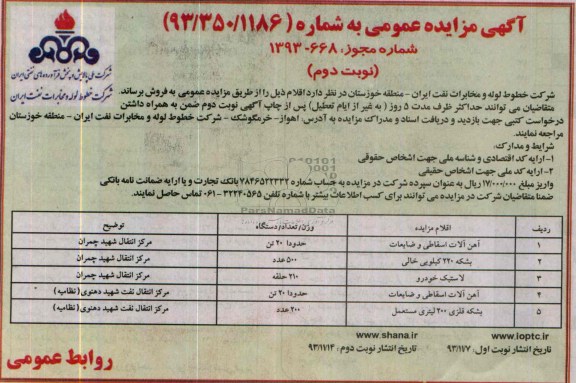 آگهی مزایده عمومی به شماره ( ۹۳/۳۵۰/۱۱۸۶)
شماره مجوز: ۶۶۸-۱۳۹۳
(نوبت دوم)
شرکت ملی پالایش و پخش فرآورده‌های نفتی ایران
شرکت خطوط لوله و مخابرات نفت ایران
شرکت خطوط لوله و مخابرات نفت ایران - منطقه خوزستان در نظر دارد اقلام ذیل را از طریق مزایده عمومی به فروش برساند.
متقاضیان می توانند حداکثر ظرف مدت ۵ روز ( به غیر از ایام تعطیل) پس از چاپ آگهی نوبت دوم ضمن به همراه داشتن
درخواست کتبی جهت بازدید و دریافت اسناد و مدارک مزایده به آدرس: اهواز- خرمکوشک - شرکت خطوط لوله و مخابرات نفت ایران - منطقه خوزستان
مراجعه نمایند.
شرایط و مدارک:
۱-ارایه کد اقتصادی و شناسه ملی جهت اشخاص حقوقی
۲-ارایه کد ملی جهت اشخاص حقیقی
واریز مبلغ ۱۷/۰۰۰/۰۰۰ ریال به عنوان سپرده شرکت در مزایده به حساب شماره ۷۸۴۶۵۲۲۳۳۲ بانک تجارت و یا ارایه ضمانت نامه بانکی
ضمنا متقاضیان شرکت در مزایده می توانند برای کسب اطلاعات بیشتر با شماره تلفن ۳۲۲۴۰۵۶۵-۰۶۱ تماس حاصل نمایند.
ParsNamadData
ردیف اقلام مزایده وزن/تعداد/دستگاه توضیح
۱ آهن آلات اسقاطی و ضایعات حدودا ۲۰ تن مرکز انتقال شهید چمران
۲ بشکه ۲۲۰ کیلویی خالی ۵۰۰ عدد مرکز انتقال شهید چمران
۳ لاستیک خودرو ۲۱۰ حلقه مرکز انتقال شهید چمران
۴ آهن آلات اسقاطی و ضایعات حدودا ۲۰ تن مرکز انتقال نفت شهید دهنوی (نظامیه)
۵ بشکه فلزی ۲۰۰ لیتری مستعمل ۲۰۰ عدد مرکز انتقال نفت شهید دهنوی (نظامیه)
www.shana.ir www.ioptc.ir
تاریخ انتشار نوبت اول: ۹۳/۱۱/۷ تاریخ انتشار نوبت دوم: ۹۳/۱۱/۱۲
روابط عمومی